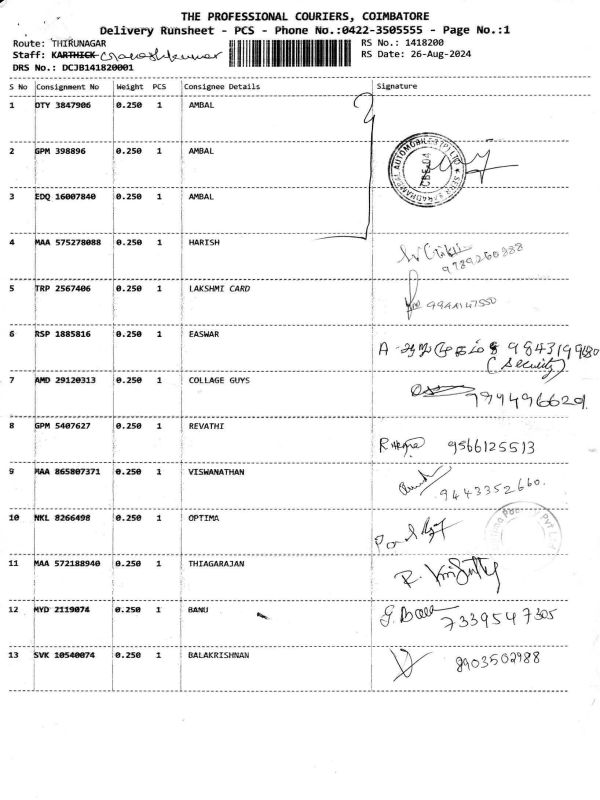 THE PROFESSIONAL COURIERS, COIMBATORE
Delivery Runsheet - PCS - Phone No.:0422-3505555 - Page No.:1
Route: THIRUNAGAR RS No.: 1418200
Staff: KARTHICK RS Date: 26-Aug-2024
DRS No.: DCJB141820001
S No Consignment No Weight PCS Consignee Details Signature
1 DTY 3847906 0.250 1 AMBAL
2 GPM 398896 0.250 1 AMBAL
3 EDQ 16007840 0.250 1 AMBAL
4 MAA 575278088 0.250 1 HARISH
9789260888
5 TRP 2567406 0.250 1 LAKSHMI CARD
9944147550
6 RSP 1885816 0.250 1 EASWAR
(Security)
7 AMD 29120313 0.250 1 COLLAGE GUYS
8 GPM 5407627 0.250 1 REVATHI
9566125513
9 MAA 865807371 0.250 1 VISWANATHAN
9443352660.
10 NKL 8266498 0.250 1 OPTIMA
11 MAA 572188940 0.250 1 THIAGARAJAN
12 MYD 2119074 0.250 1 BANU
7339547305
13 SVK 10540074 0.250 1 BALAKRISHNAN
8903502988